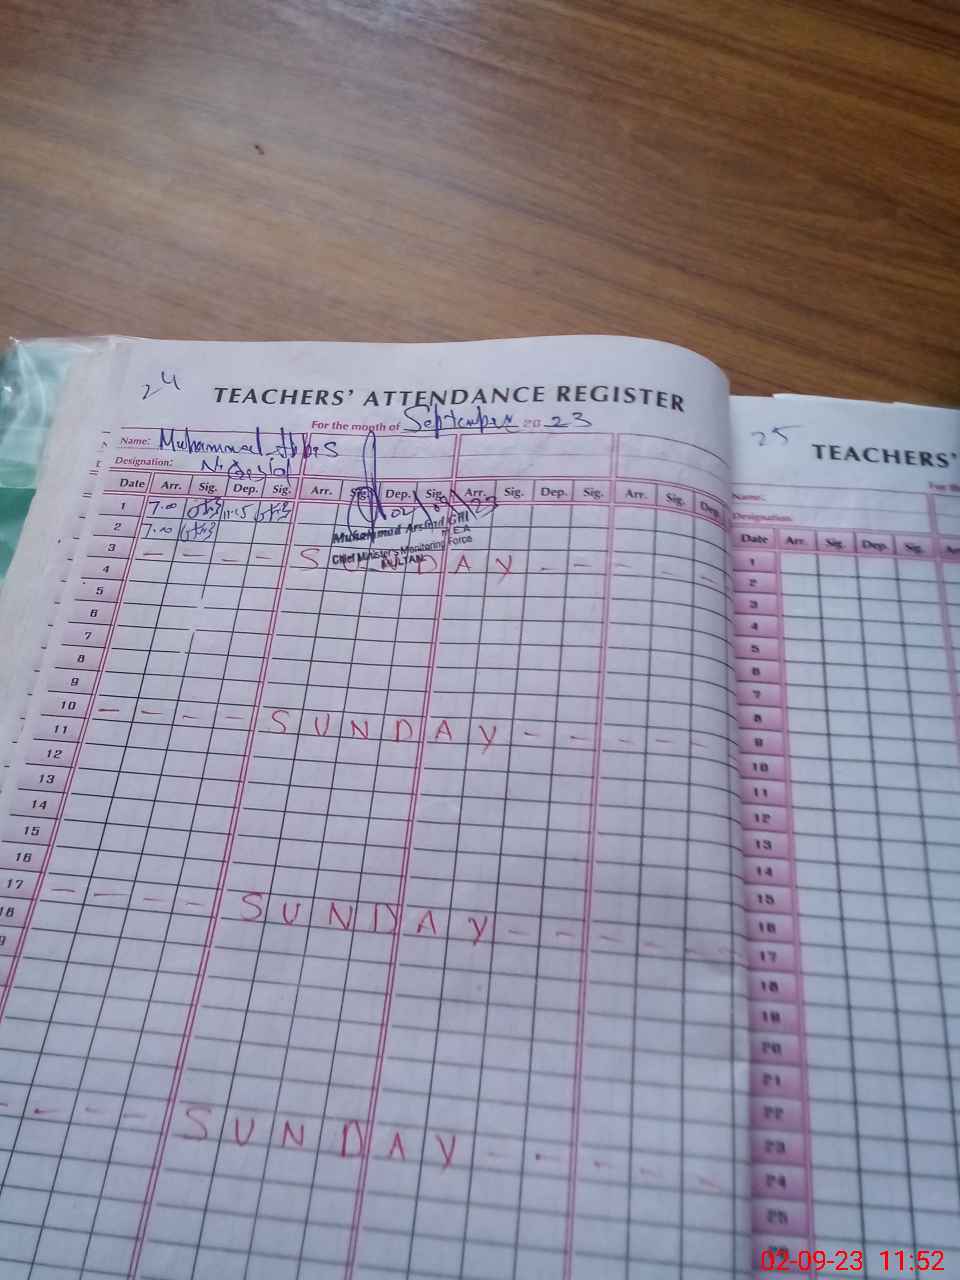 24
TEACHERS' ATTENDANCE REGISTER
For the month of September 20 23
Name: Muhammad
Designation:
Date Arr. Sig. Dep. Sig. Arr. Sig. Dep. Sig. Arr. Sig. Dep. Sig. Arr. Sig. Dep.
1 7.00 11.15
2 7.00
02/09/23
Muhammad Arshad Gill
M.E.A
Chief Minister's Monitoring Force
MULTAN
3 - - - - SUNDAY - - - - -
4
5
6
7
8
9
10 - - - - SUNDAY - - - - -
11
12
13
14
15
16
17 - - - - SUNDAY - - - - - -
18
9
- - - - - SUNDAY - - - - - -
25
TEACHERS'
Name:
Designation:
Date Arr. Sig. Dep. Sig.
1
2
3
4
5
6
7
8
9
10
11
12
13
14
15
16
17
18
19
20
21
22
23
24
25
02-09-23 11:52